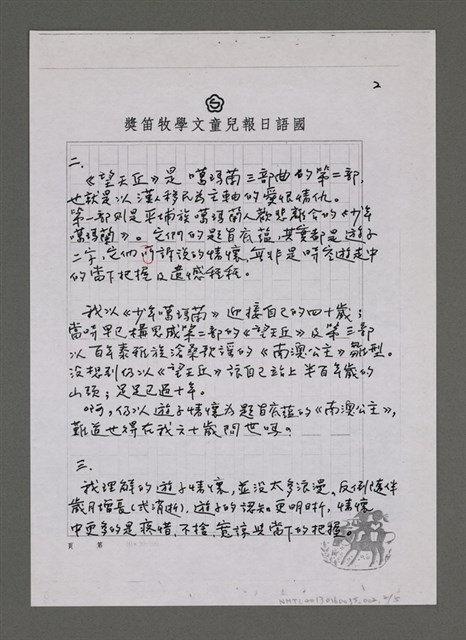 2
獎笛牧學文童兒報日語國
二.
《望天丘》是噶瑪蘭三部曲的第二部,
也就是以漢人移民為主軸的愛恨情仇。
第一部則是平埔族噶瑪蘭人歡悲離合的《少年
噶瑪蘭》。它們的題旨底蘊,其實都是遊子
二字,它們所訴說的情懷,無非是時空遊走中
的當下把握及遺憾種種。
我以《少年噶瑪蘭》迎接自己的四十歲;
當時早已構思成第二部的《望天丘》及第三部
以百年泰雅族滄桑歌謠的《南澳公主》雛型。
沒想到仍以《望天丘》讓自己站上半百年歲的
山頭;足足已過十年。
啊,仍以遊子情懷為題旨底蘊的《南澳公主》,
難道也得在我六十歲問世嗎?
三.
我理解的遊子情懷,並沒太多浪漫、反倒隨伴
歲月增長(或消逝),遊子的認知更明晰,情懷
中更多的是疼惜、不捨、寬諒與當下的把握。
頁 第